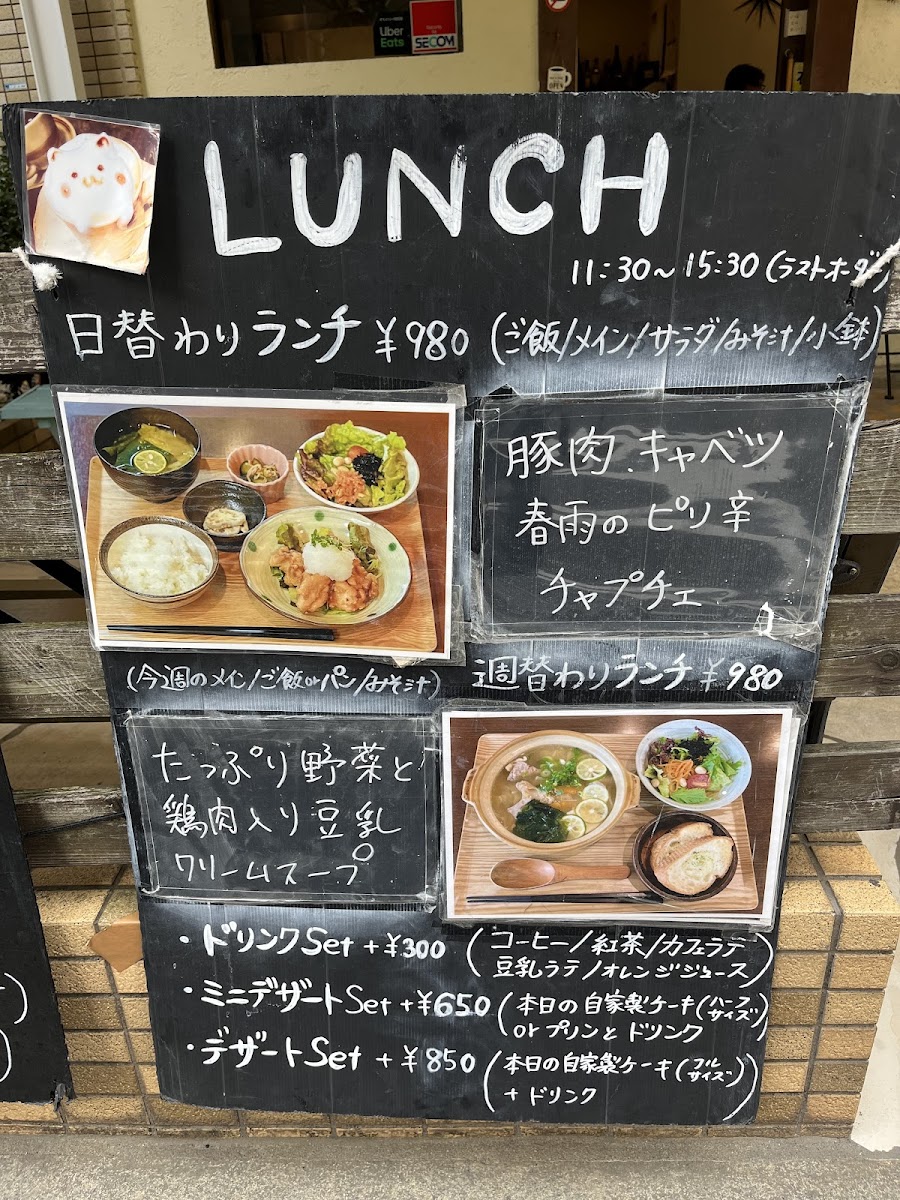 Uber
Eats
SECOM
OPEN
LUNCH
11:30〜15:30(ラストオーダー)
日替わりランチ ¥980 (ご飯/メイン/サラダ/みそ汁/小鉢)
豚肉、キャベツ
春雨のピリ辛
チャプチェ
(今週のメイン/ご飯orパン/みそ汁) 週替わりランチ ¥980
たっぷり野菜と
鶏肉入り豆乳
クリームスープ
・ドリンクSet +¥300 (コーヒー/紅茶/カフェラテ
豆乳ラテ/オレンジジュース)
・ミニデザートSet +¥650 (本日の自家製ケーキ(ハーフサイズ)
orプリンとドリンク)
・デザートSet +¥850 (本日の自家製ケーキ(フルサイズ)
+ドリンク)